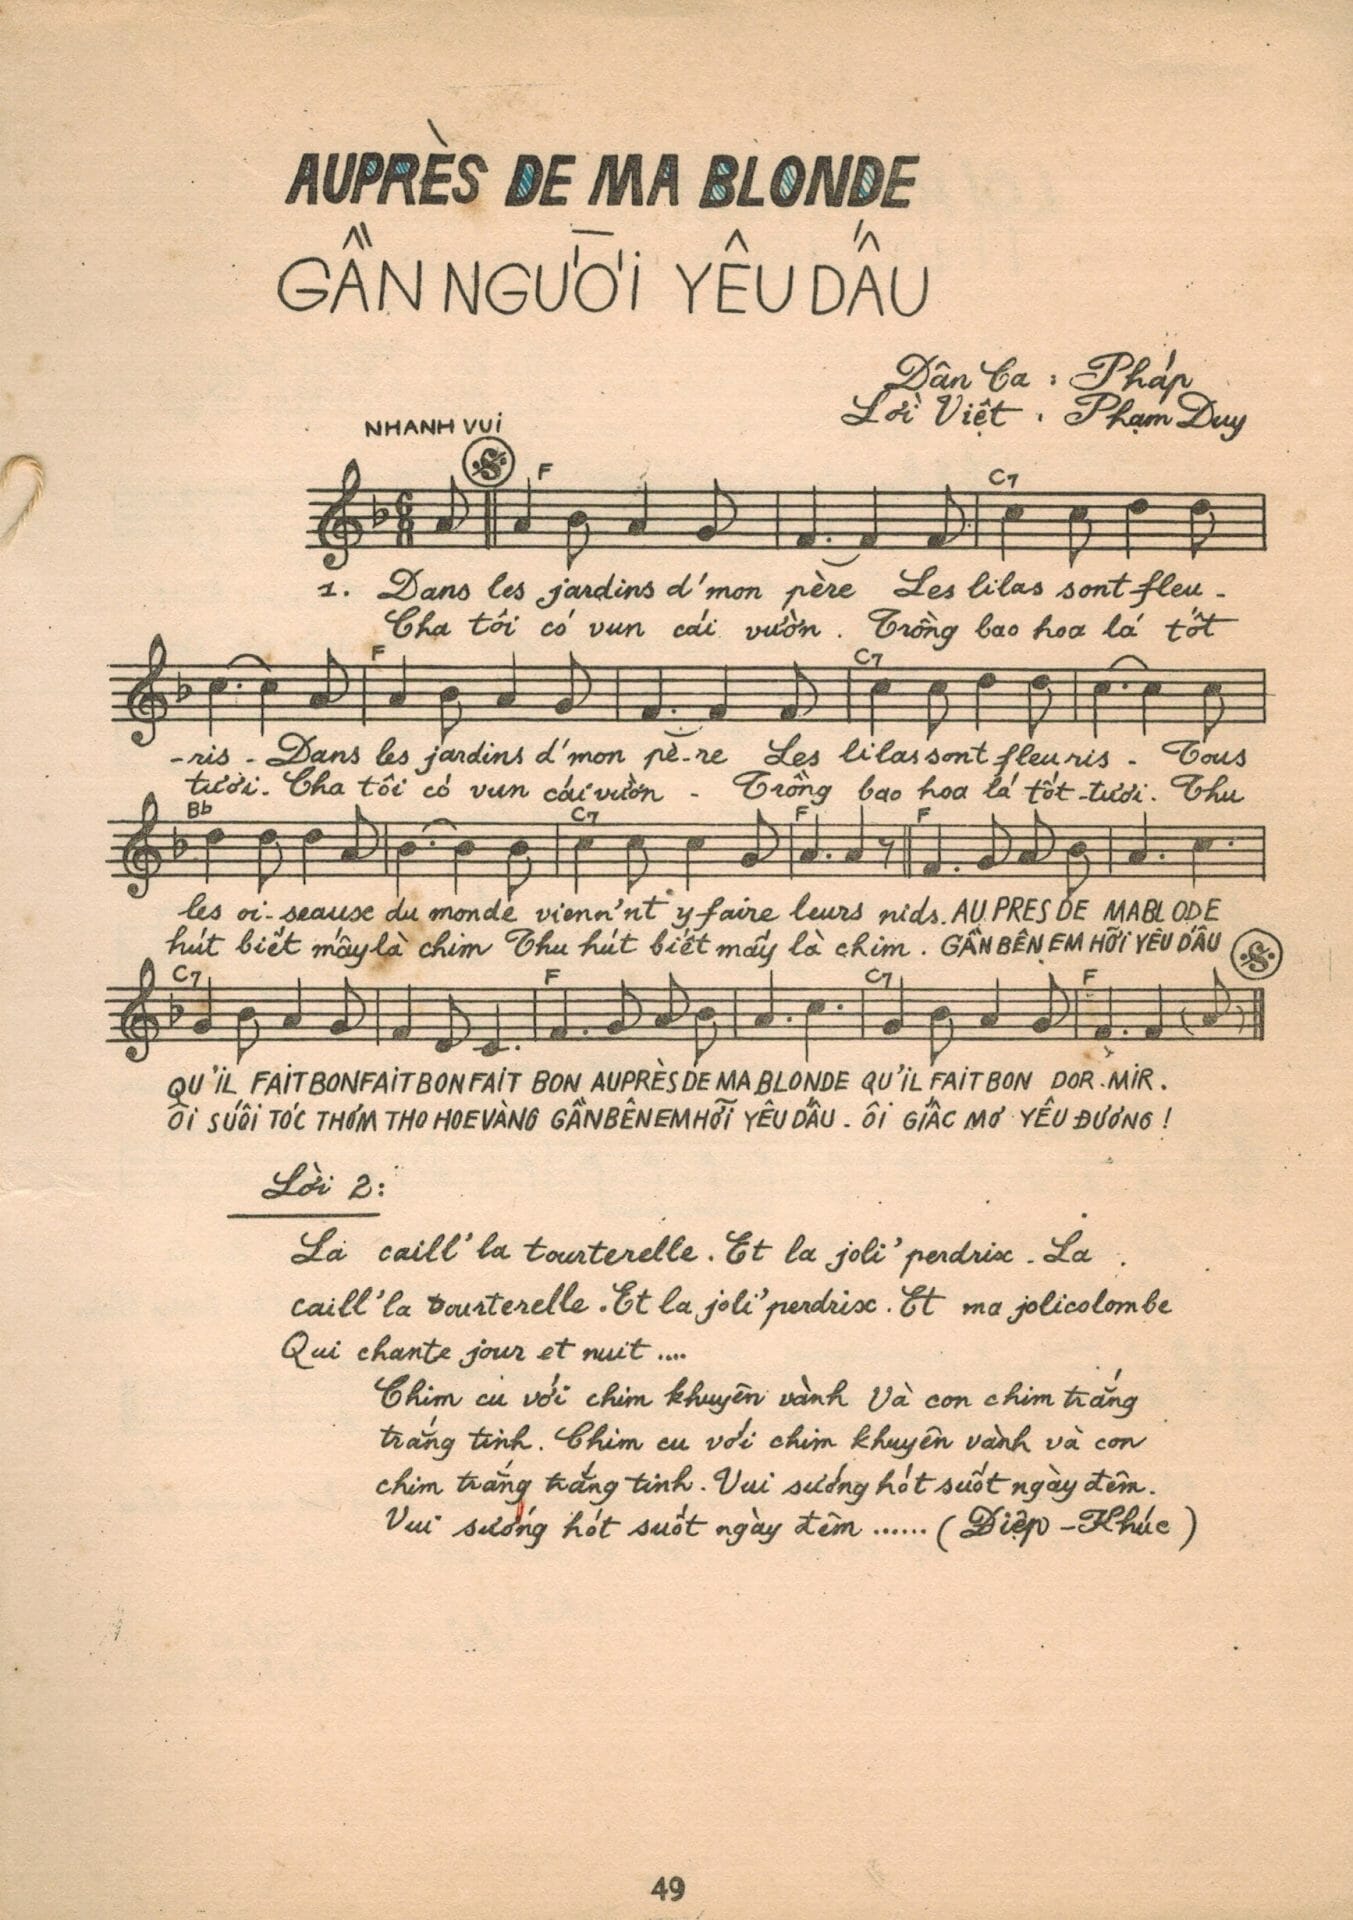 AUPRÈS DE MA BLONDE
GẦN NGƯỜI YÊU DẤU
Dân Ca : Pháp
Lời Việt : Phạm Duy
NHANH VUI
F C7
1. Dans les jardins d'mon père Les lilas sont fleu -
Cha tôi có vun cái vườn . Trồng bao hoa lá tốt
F C7
-ris - Dans les jardins d'mon pè-re Les lilas sont fleuris - Tous
tươi. Cha tôi có vun cái vườn - Trồng bao hoa lá tốt-tươi. Thu
Bb C7 F F
les oi-seause du monde vienn'nt y faire leurs nids. AU PRES DE MA BLODE
hút biết mấy là chim Thu hút biết mấy là chim . GẦN BÊN EM HỠI YÊU DẤU
C7 F C7 F
QU'IL FAIT BON FAIT BON FAIT BON AUPRÈS DE MA BLONDE QU'IL FAIT BON DOR-MIR.
ÔI SUỐI TÓC THƠM THO HOE VÀNG GẦN BÊN EM HỠI YÊU DẤU - ÔI GIẤC MƠ YÊU ĐƯƠNG !
Lời 2:
La caill' la tourterelle. Et la joli' perdrix - La
caill' la tourterelle. Et la joli' perdrix. Et ma jolicolombe
Qui chante jour et nuit ....
Chim cu với chim khuyên vành Và con chim trắng
trắng tinh. Chim cu với chim khuyên vành và con
chim trắng trắng tinh. Vui sướng hót suốt ngày đêm.
Vui sướng hót suốt ngày đêm ...... ( Điệp - Khúc )
49